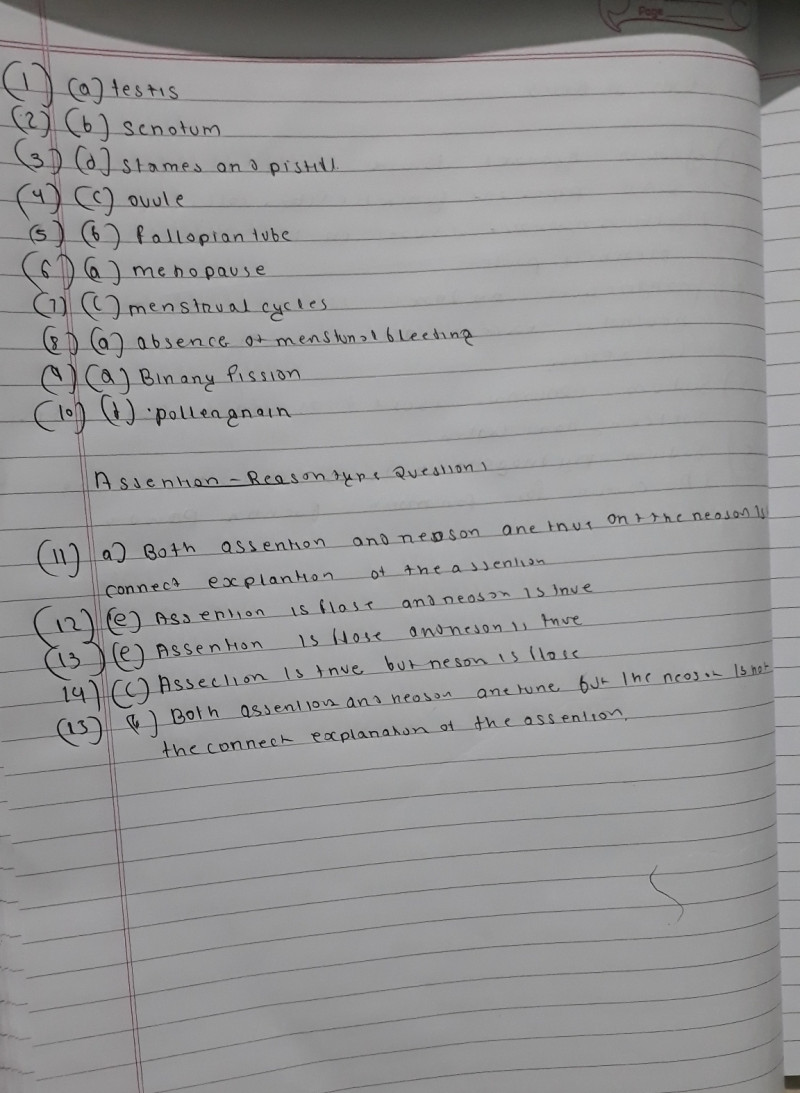 Page
(1) (a) testis
(2) (b) scnotum
(3) (d) stames and pistill
(4) (c) ovule
(5) (b) fallopian tube
(6) (a) menopause
(7) (c) menstnual cycles
(8) (a) absence of menstunal bleeding
(9) (a) Binany fission
(10) (d) pollengnain
Assention - Reason type Questions
(11) a) Both assention and neason ane tnue and the neason is
connect explantion of the assention
(12) (e) Assention is flase and neason is tnue
(13) (e) Assention is flase and neson is tnue
14) (c) Assection is tnue but neson is flase
(15) (b) Both assention and neason ane tune but the neason is not
the connect explanation of the assention.